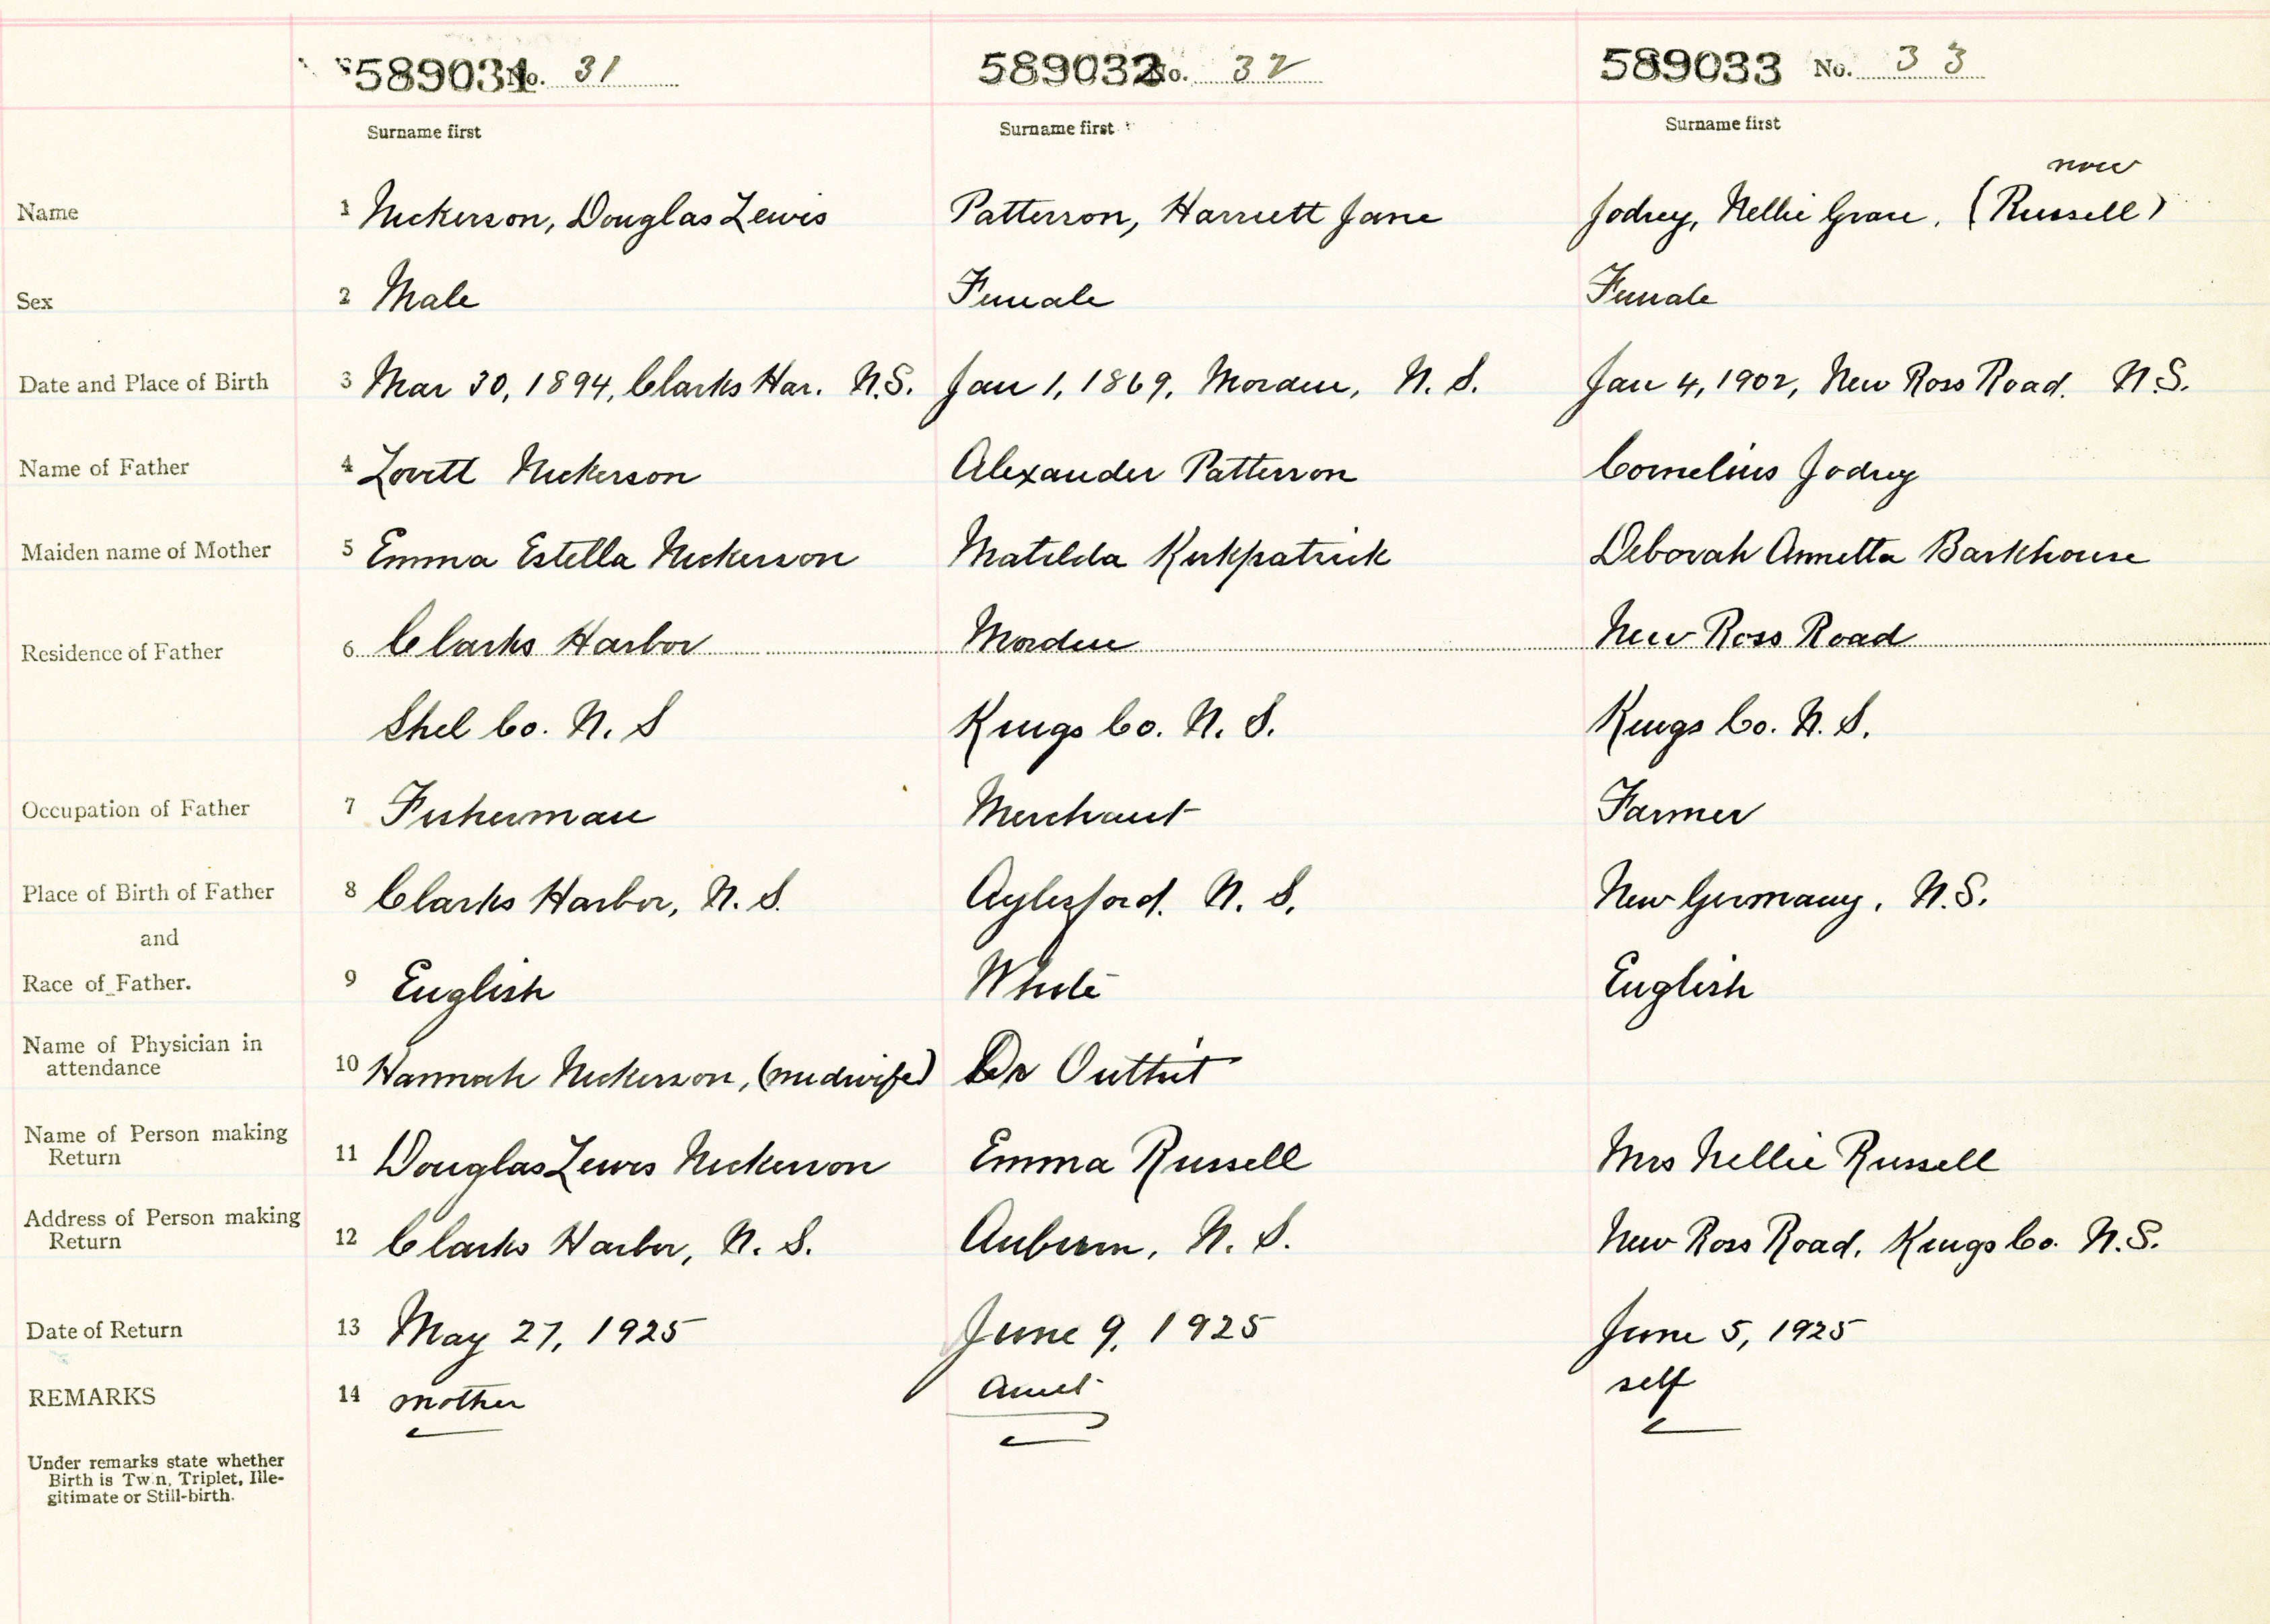 589031 No. 31 589032 No. 32 589033 No. 33
Surname first Surname first Surname first
now
Name 1 Nickerson, Douglas Lewis Patterson, Harriett Jane Jodrey, Nellie Grace, (Russell)
Sex 2 Male Female Female
Date and Place of Birth 3 Mar 30, 1894, Clarks Har. N.S. Jan 1, 1869, Morden, N. S. Jan 4, 1902, New Ross Road. N.S.
Name of Father 4 Lovett Nickerson Alexander Patterson Cornelius Jodrey
Maiden name of Mother 5 Emma Estella Nickerson Matilda Kirkpatrick Deborah Annetta Barkhouse
Residence of Father 6 Clarks Harbor Morden New Ross Road
Shel Co. N. S Kings Co. N. S. Kings Co. N. S.
Occupation of Father 7 Fisherman Merchant Farmer
Place of Birth of Father 8 Clarks Harbor, N. S. Aylesford. N. S. New Germany, N.S.
and
Race of Father. 9 English White English
Name of Physician in
attendance 10 Hannah Nickerson, (midwife) Dr Outhit
Name of Person making
Return 11 Douglas Lewis Nickerson Emma Russell Mrs Nellie Russell
Address of Person making
Return 12 Clarks Harbor, N. S. Auburn, N. S. New Ross Road, Kings Co. N.S.
Date of Return 13 May 27, 1925 June 9, 1925 June 5, 1925
REMARKS 14 mother aunt self
Under remarks state whether
Birth is Twin, Triplet, Ille-
gitimate or Still-birth.